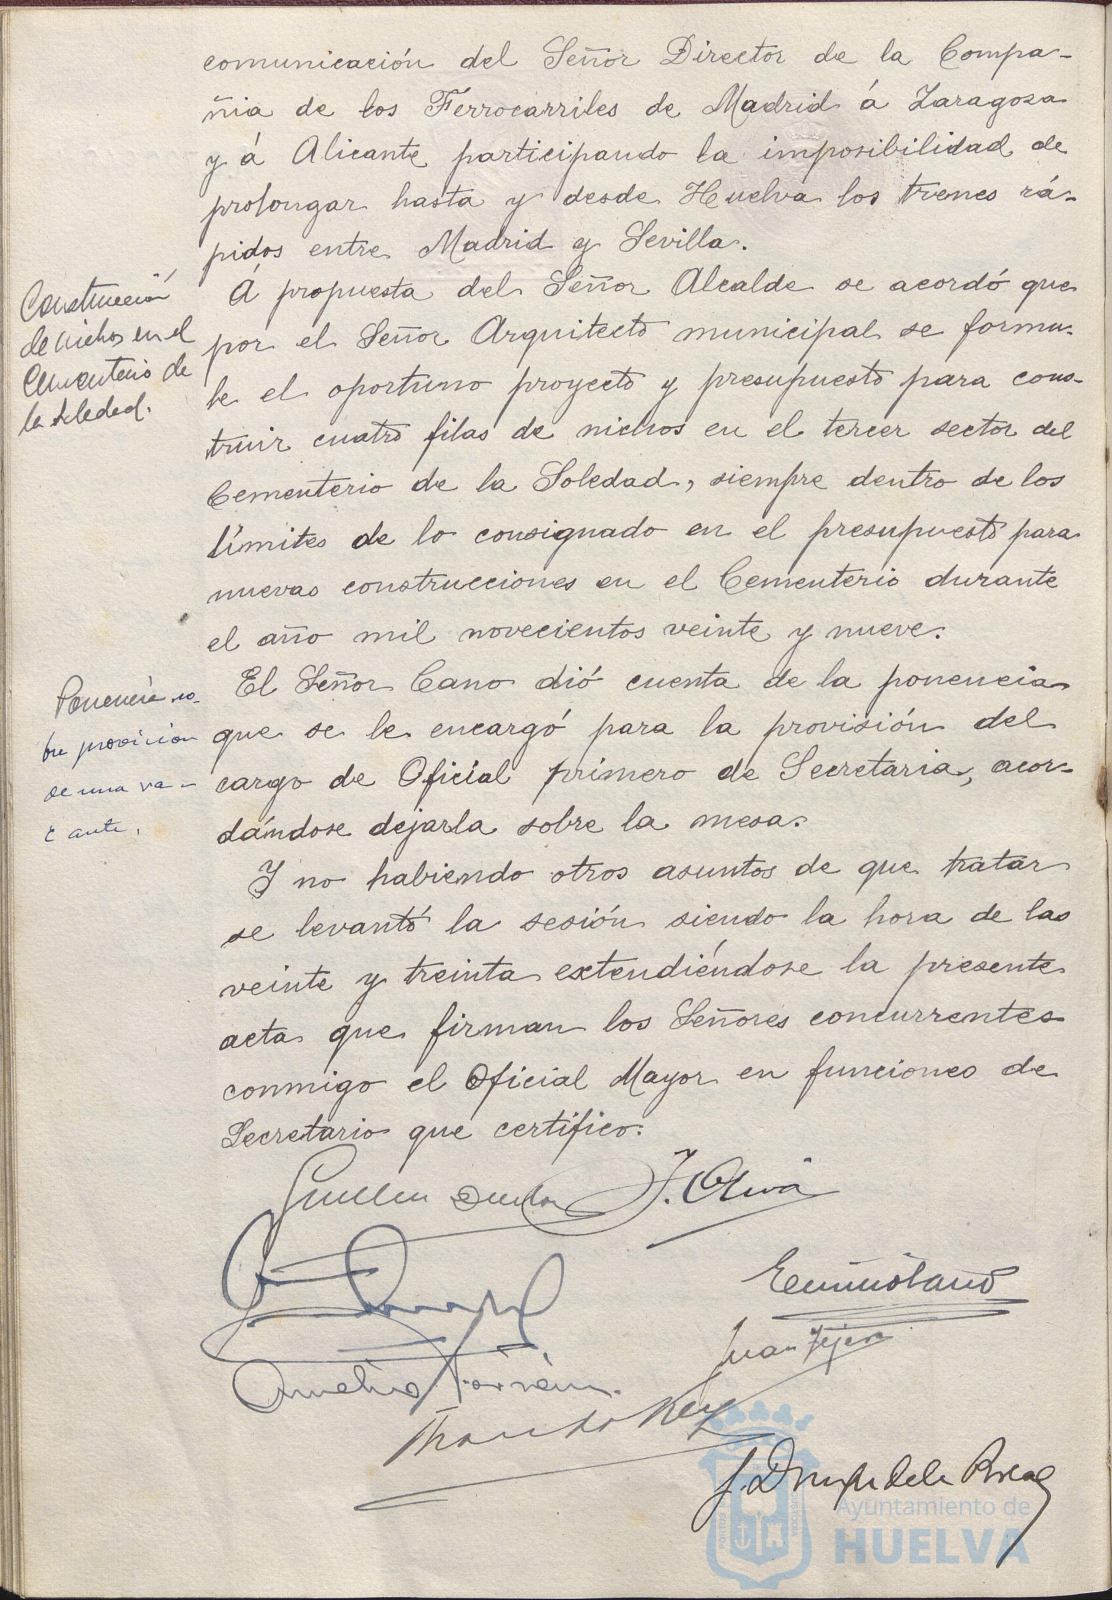 comunicación del Señor Director de la Compa-
ñia de los Ferrocarriles de Madrid á Zaragoza
y á Alicante participando la imposibilidad de
prolongar hasta y desde Huelva los trenes rá-
pidos entre Madrid y Sevilla.
Construcción
de nichos en el
Cementerio de
la Soledad.
Á propuesta del Señor Alcalde se acordó que
por el Señor Arquitecto municipal se formu-
le el oportuno proyecto y presupuesto para cons-
truir cuatro filas de nichos en el tercer sector del
Cementerio de la Soledad, siempre dentro de los
límites de lo consignado en el presupuesto para
nuevas construcciones en el Cementerio durante
el año mil novecientos veinte y nueve.
Ponencia so-
bre provision
de una va-
cante.
El Señor Cano dió cuenta de la ponencia
que se le encargó para la provisión del
cargo de Oficial primero de Secretaria, acor-
dándose dejarla sobre la mesa.
Y no habiendo otros asuntos de que tratar
se levantó la sesión siendo la hora de las
veinte y treinta extendiéndose la presente
acta que firman los Señores concurrentes
conmigo el Oficial Mayor en funciones de
Secretario que certifico.
J. Oliva
Juan Tejero
Rey
Ayuntamiento de
HUELVA